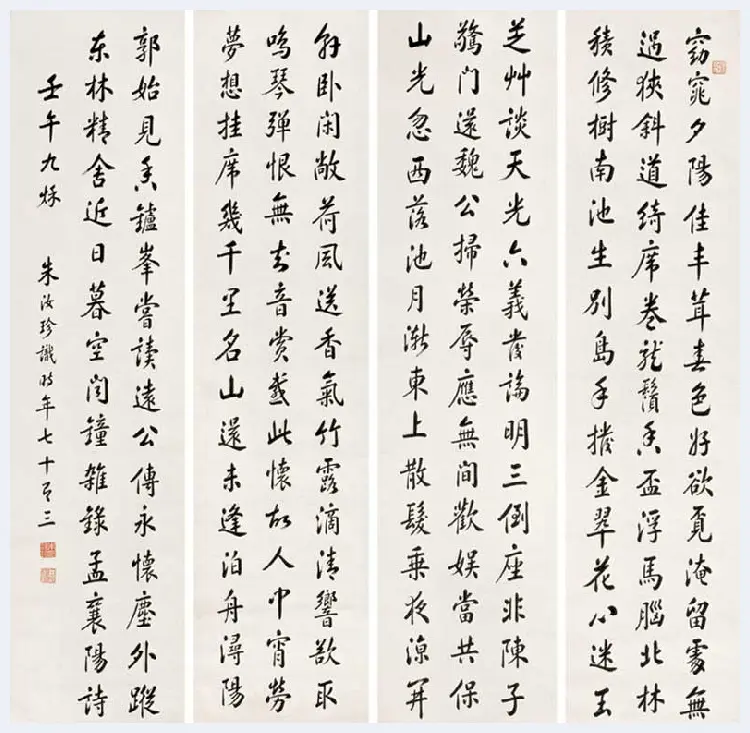 窈窕夕陽佳丰茸春色好欲覓淹留處無
過狹斜道綺席卷龍鬚香盃浮馬腦北林
積修樹南池生別島手撥金翠花心迷玉
芝艸談天光六義發論明三倒座非陳子
驚門還魏公掃榮辱應無間歡娛當共保
山光忽西落池月漸東上散髮乘夜涼開
軒臥閑敞荷風送香氣竹露滴清響欲取
鳴琴彈恨無知音賞感此懷故人中宵勞
夢想挂席幾千里名山還未逢泊舟潯陽
郭始見香鑪峯嘗讀遠公傳永懷塵外蹤
東林精舍近日暮空聞鐘雜錄孟襄陽詩
壬午九秋 朱汝珍識時年七十有三